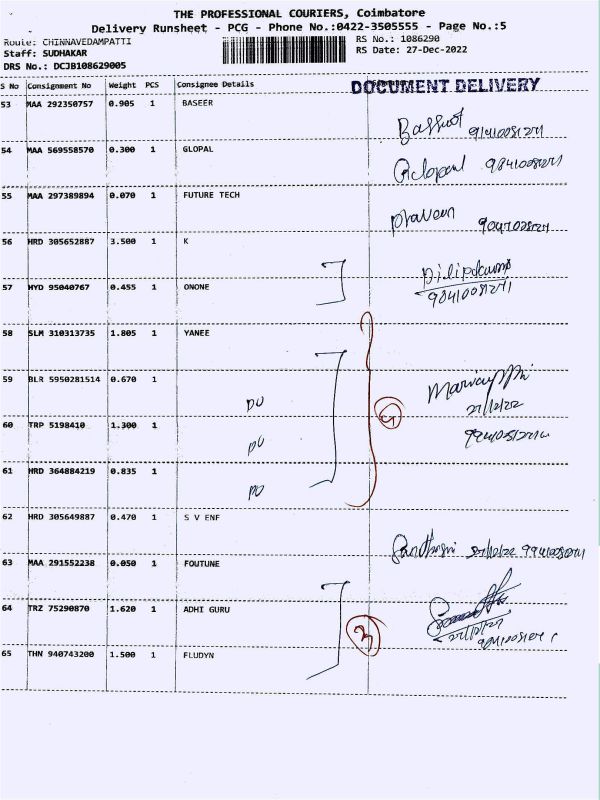 THE PROFESSIONAL COURIERS, Coimbatore
Delivery Runsheet - PCG - Phone No.:0422-3505555 - Page No.:5
Route: CHINNAVEDAMPATTI RS No.: 1086290
Staff: SUDHAKAR RS Date: 27-Dec-2022
DRS No.: DCJB108629005
S No Consignment No Weight PCS Consignee Details DOCUMENT DELIVERY
53 MAA 292350757 0.905 1 BASEER
54 MAA 569558570 0.300 1 GLOPAL
55 MAA 297389894 0.070 1 FUTURE TECH
Praveen
56 HRD 305652887 3.500 1 K
57 HYD 95040767 0.455 1 ONONE
58 SLM 310313735 1.805 1 YANEE
59 BLR 5950281514 0.670 1
27/12/22
60 TRP 5198410 1.300 1
61 HRD 364884219 0.835 1
62 HRD 305649887 0.470 1 S V ENF
27/12/22
63 MAA 291552238 0.050 1 FOUTUNE
64 TRZ 75290870 1.620 1 ADHI GURU
3
65 THN 940743200 1.500 1 FLUDYN